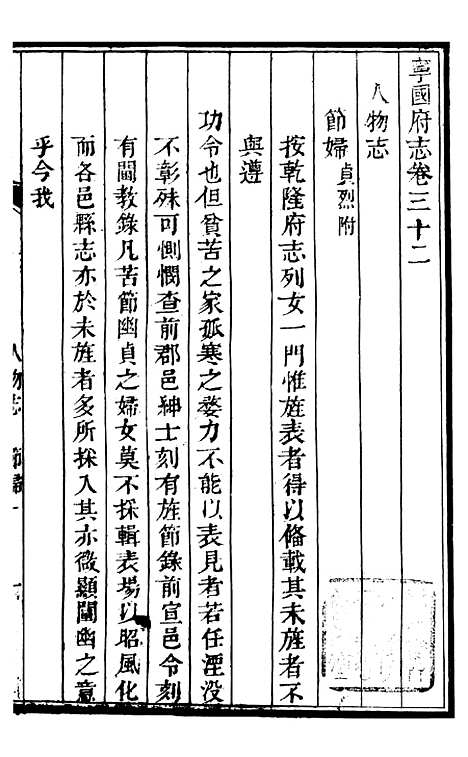 寧國府志卷三十二
人物志
節婦貞烈附
按乾隆府志列女一門惟旌表者得以俻載其未旌者不
與遵
功令也但貧苦之家孤寒之嫠力不能以表見者若任湮没
不彰殊可惻憫查前郡邑紳士刻有旌節錄前宣邑令刻
有闡教錄凡苦節幽貞之婦女莫不採輯表揚以昭風化
而各邑縣志亦於未旌者多所採入其亦微顯闡幽之意
乎今我
人物志 節婦 一